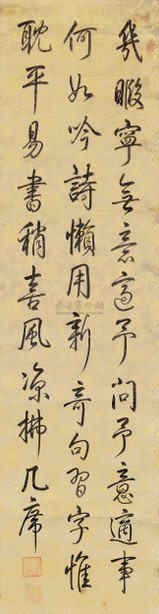 幾暇寧無意適予問予意適事
何如吟詩懶用新奇句習字惟
耽平易書稍喜風涼拂几席